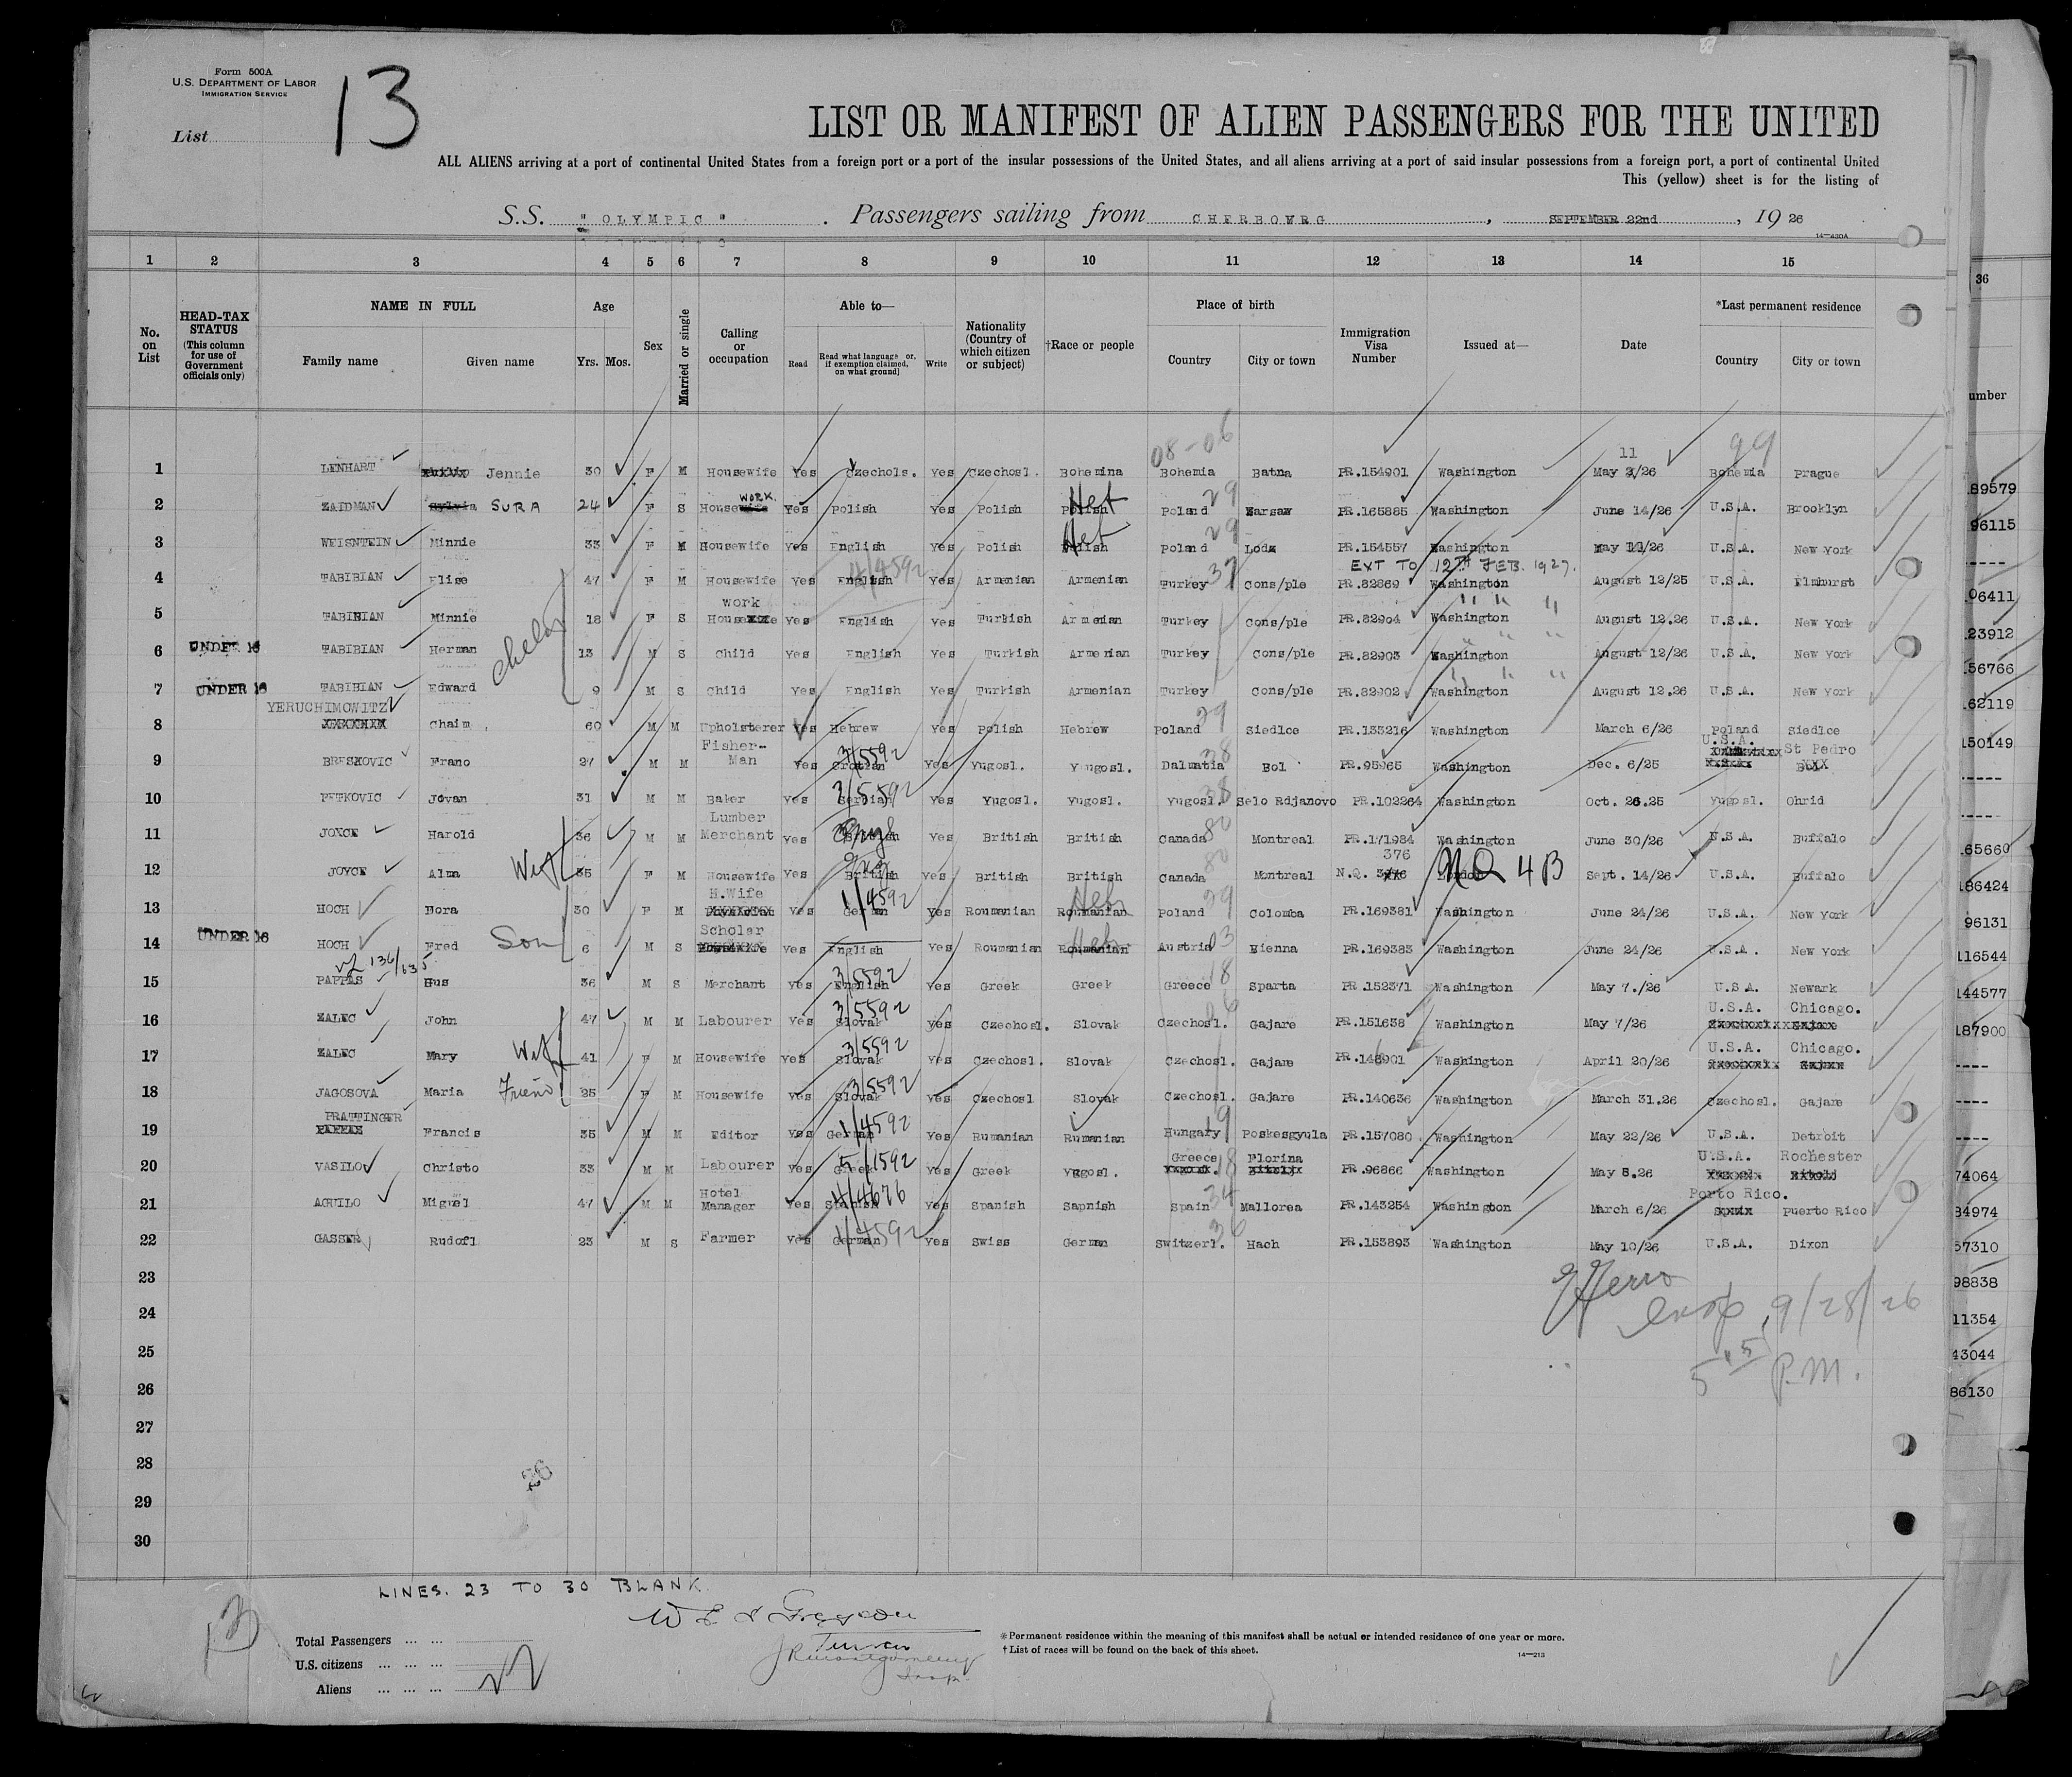 Form 500A
U.S. DEPARTMENT OF LABOR
IMMIGRATION SERVICE
List 13
LIST OR MANIFEST OF ALIEN PASSENGERS FOR THE UNITED
ALL ALIENS arriving at a port of continental United States from a foreign port or a port of the insular possessions of the United States, and all aliens arriving at a port of said insular possessions from a foreign port, a port of continental United
This (yellow) sheet is for the listing of
S.S. "OLYMPIC". Passengers sailing from CHERBOURG, SEPTEMBER 22nd, 1926
14—430A
1 2 3 4 5 6 7 8 9 10 11 12 13 14 15 36
No. on List
HEAD-TAX STATUS (This column for use of Government officials only)
NAME IN FULL Family name Given name
Age Yrs. Mos.
Sex
Married or single
Calling or occupation
Able to— Read Read what language or, if exemption claimed, on what ground] Write
Nationality (Country of which citizen or subject)
†Race or people
Place of birth Country City or town
Immigration Visa Number
Issued at—
Date
*Last permanent residence Country City or town
umber
08-06 11 99
1 LENHART Jennie 30 F M Housewife Yes Czechols. Yes Czechosl. Bohemina Bohemia Batna PR.154901 Washington May /26 Bohemia Prague
2 ZAIDMAN Sylvia SURA 24 F S Housewife WORK. Yes Polish Yes Polish Polish Heb Poland 29 Warsaw PR.165885 Washington June 14/26 U.S.A. Brooklyn
3 WEISNTEIN Minnie 33 F M Housewife Yes English Yes Polish Polish Heb Poland 29 Lodz PR.154557 Washington May 11/26 U.S.A. New York
EXT TO 12TH FEB. 1927.
4 TABIBIAN Elise 47 F M Housewife Yes English 4/4592 Yes Armenian Armenian Turkey 37 Cons/ple PR.82869 Washington August 12/25 U.S.A. Elmhurst
5 TABIBIAN Minnie 18 F S House work Yes English Yes Turkish Armenian Turkey Cons/ple PR.82904 Washington " " " August 12.26 U.S.A. New York
6 UNDER 16 TABIBIAN Herman 13 M S Child Yes English Yes Turkish Armenian Turkey Cons/ple PR.82903 Washington " " " August 12/26 U.S.A. New York
7 UNDER 16 TABIBIAN Edward 9 M S Child Yes English Yes Turkish Armenian Turkey Cons/ple PR.82902 Washington " " " August 12.26 U.S.A. New York
8 YERUCHIMOWITZ Chaim 60 M M Upholsterer Yes Hebrew Yes Polish Hebrew Poland 29 Siedlce PR.133216 Washington March 6/26 Poland Siedlce
9 BRESKOVIC Frano 27 M M Fisher-Man Yes Crotian 3/5592 Yes Yugosl. Yougosl. Dalmatia 38 Bol PR.95965 Washington Dec. 6/25 U.S.A. St Pedro
10 PETKOVIC Jovan 31 M M Baker Yes Serbian 3/5592 Yes Yugosl. Yugosl. Yugosl. 38 Selo Rdjanovo PR.102264 Washington Oct. 26.25 Yugosl. Ohrid
11 JOYCE Harold 36 M M Lumber Merchant Yes British Engl Yes British British Canada 80 Montreal PR.171984 Washington June 30/26 U.S.A. Buffalo
12 JOYCE Alma Wif 35 F M Housewife Yes British Eng Yes British British Canada 80 Montreal N.Q. 376 NQ 4B Sept. 14/26 U.S.A. Buffalo
13 HOCH Dora 30 F M H.Wife Yes German 1/4592 Yes Roumanian Roumanian Heb Poland 29 Colomba PR.169381 Washington June 24/26 U.S.A. New York
14 UNDER 16 HOCH Fred Son 6 M S Scholar Yes English Yes Roumanian Roumanian Heb Austria 03 Vienna PR.169383 Washington June 24/26 U.S.A. New York
15 PAPPAS Gus 36 M S Merchant Yes English 3/5592 Yes Greek Greek Greece 18 Sparta PR.152371 Washington May 7./26 U.S.A. Newark
16 ZALEC John 47 M M Labourer Yes Slovak 3/5592 Yes Czechosl. Slovak Czechosl. 06 Gajare PR.151638 Washington May 7/26 U.S.A. Chicago.
17 ZALEC Mary Wif 41 F M Housewife Yes Slovak 3/5592 Yes Czechosl. Slovak Czechosl. Gajare PR.148901 Washington April 20/26 U.S.A. Chicago.
18 JAGOSOVA Maria Friend 25 F M Housewife Yes Slovak 3/5592 Yes Czechosl Slovak Czechosl. Gajare PR.140636 Washington March 31.26 Czechosl. Gajare
19 PRATTINGER Francis 35 M M Editor Yes German 1/4592 Yes Rumanian Rumanian Hungary 19 Poskesgyula PR.157080 Washington May 22/26 U.S.A. Detroit
20 VASILOV Christo 33 M M Labourer Yes Greek 5/1592 Yes Greek Yugosl. Greece 18 Florina PR.96866 Washington May 5.26 U.S.A. Rochester
21 AGUILO Miguel 47 M M Hotel Manager Yes Spanish 4/4676 Yes Spanish Sapnish Spain 34 Mallorea PR.143254 Washington March 6/26 Porto Rico. Puerto Rico
22 GASSER Rudofl 23 M S Farmer Yes German 1/4592 Yes Swiss German Switzerl. 36 Hach PR.153893 Washington May 10/26 U.S.A. Dixon
23
24
25
26
27
28
29
30
insp 9/28/26
5 45 P.M.
89579
96115
06411
23912
56766
62119
150149
65660
186424
96131
116544
144577
187900
74064
84974
57310
98838
11354
43044
86130
LINES. 23 TO 30 BLANK.
13
Total Passengers ... ...
U.S. citizens ... ... ...
Aliens ... ... ...
*Permanent residence within the meaning of this manifest shall be actual or intended residence of one year or more.
†List of races will be found on the back of this sheet.
14—213